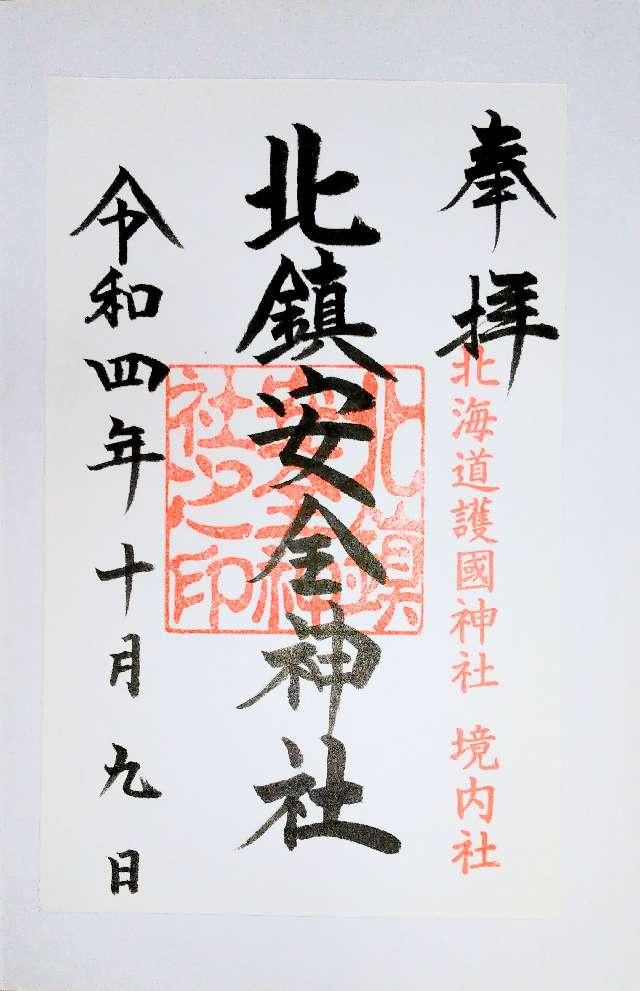 奉拝
北海道護國神社 境内社
北鎮安全神社
北鎮安全神社之印
令和四年十月九日